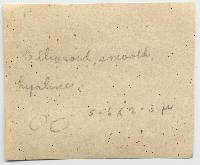 Ellipsoid, smooth,
hyaline,
5-6 x 2-3 µ